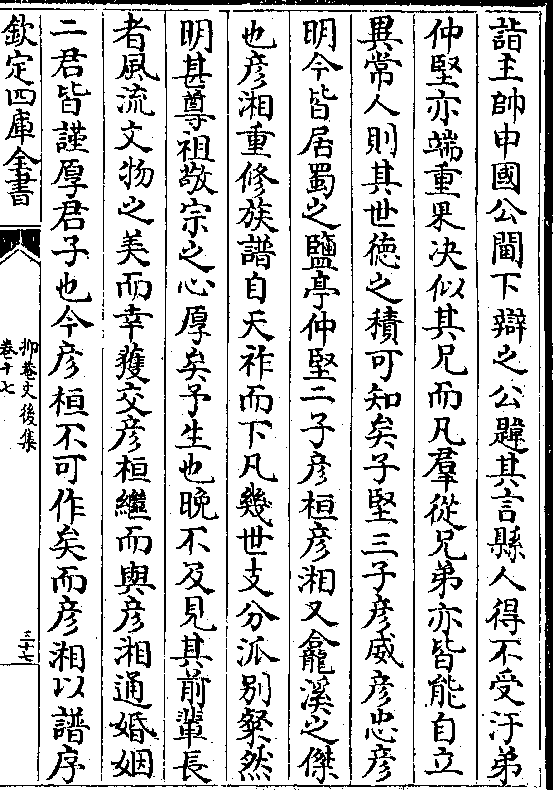 詣主帥申國公閫下辯之公韙其言縣人得不受汙弟
仲堅亦端重果决似其兄而凡羣從兄弟亦皆能自立
異常人則其世徳之積可知矣子堅三子彦威彦忠彦
明今皆居蜀之鹽亭仲堅二子彦桓彦湘又龕溪之傑
也彦湘重修族譜自天祚而下凡幾世支分派别粲然
明甚尊祖敬宗之心厚矣予生也晩不及見其前輩長
者風流文物之美而幸獲交彦桓繼而與彦湘通婚姻
二君皆謹厚君子也今彦桓不可作矣而彦湘以譜序
欽定四庫全書
抑菴文後集
卷十七
三十七